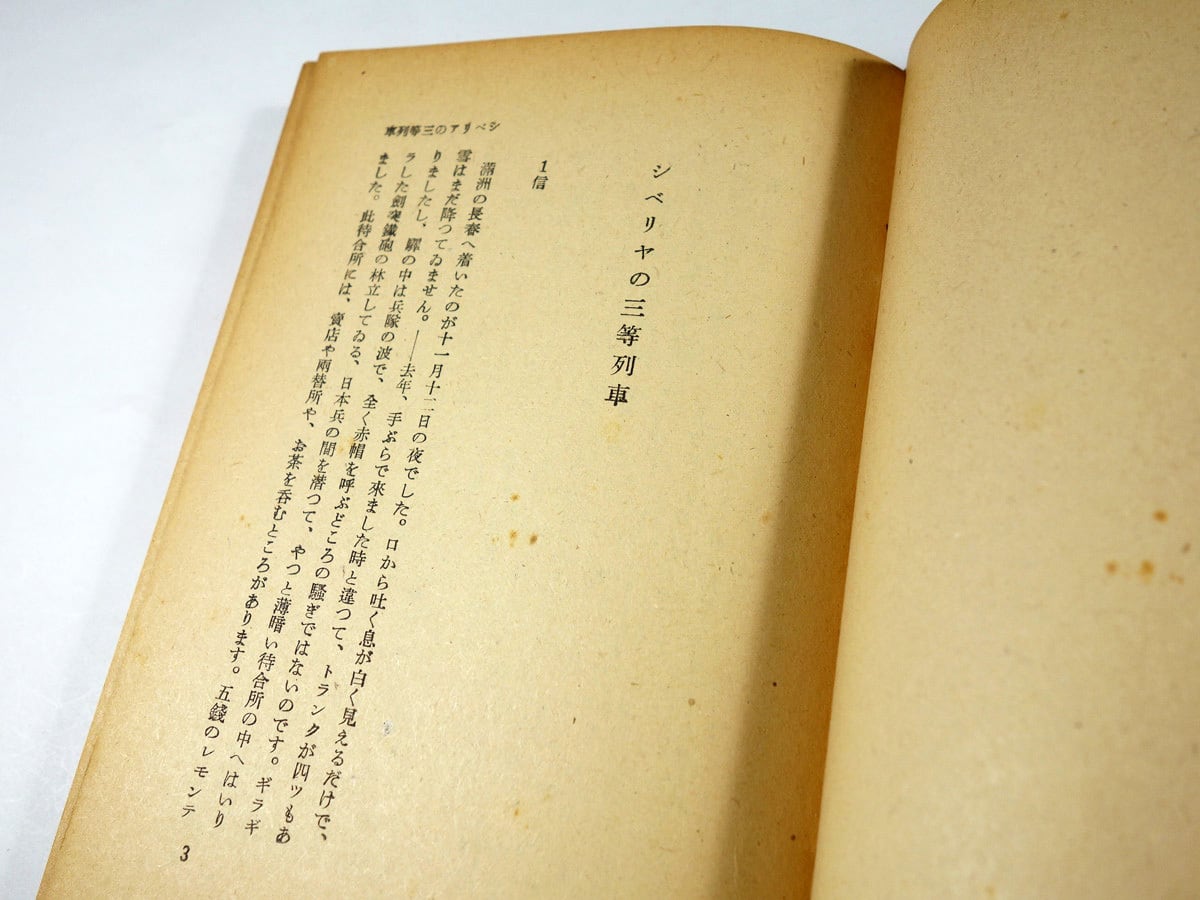 車列等三のアリベシ
シベリヤの三等列車
1信
滿洲の長春へ着いたのが十一月十二日の夜でした。口から吐く息が白く見えるだけで、
雪はまだ降つてゐません。――去年、手ぶらで來ました時と違つて、トランクが四ツもあ
りましたし、驛の中は兵隊の波で、全く赤帽を呼ぶどころの騷ぎではないのです。ギラギ
ラした劍突鐵砲の林立してゐる、日本兵の間を潜つて、やつと薄暗い待合所の中へはいり
ました。此待合所には、賣店や兩替所や、お茶を呑むところがあります。五錢のレモンテ
3